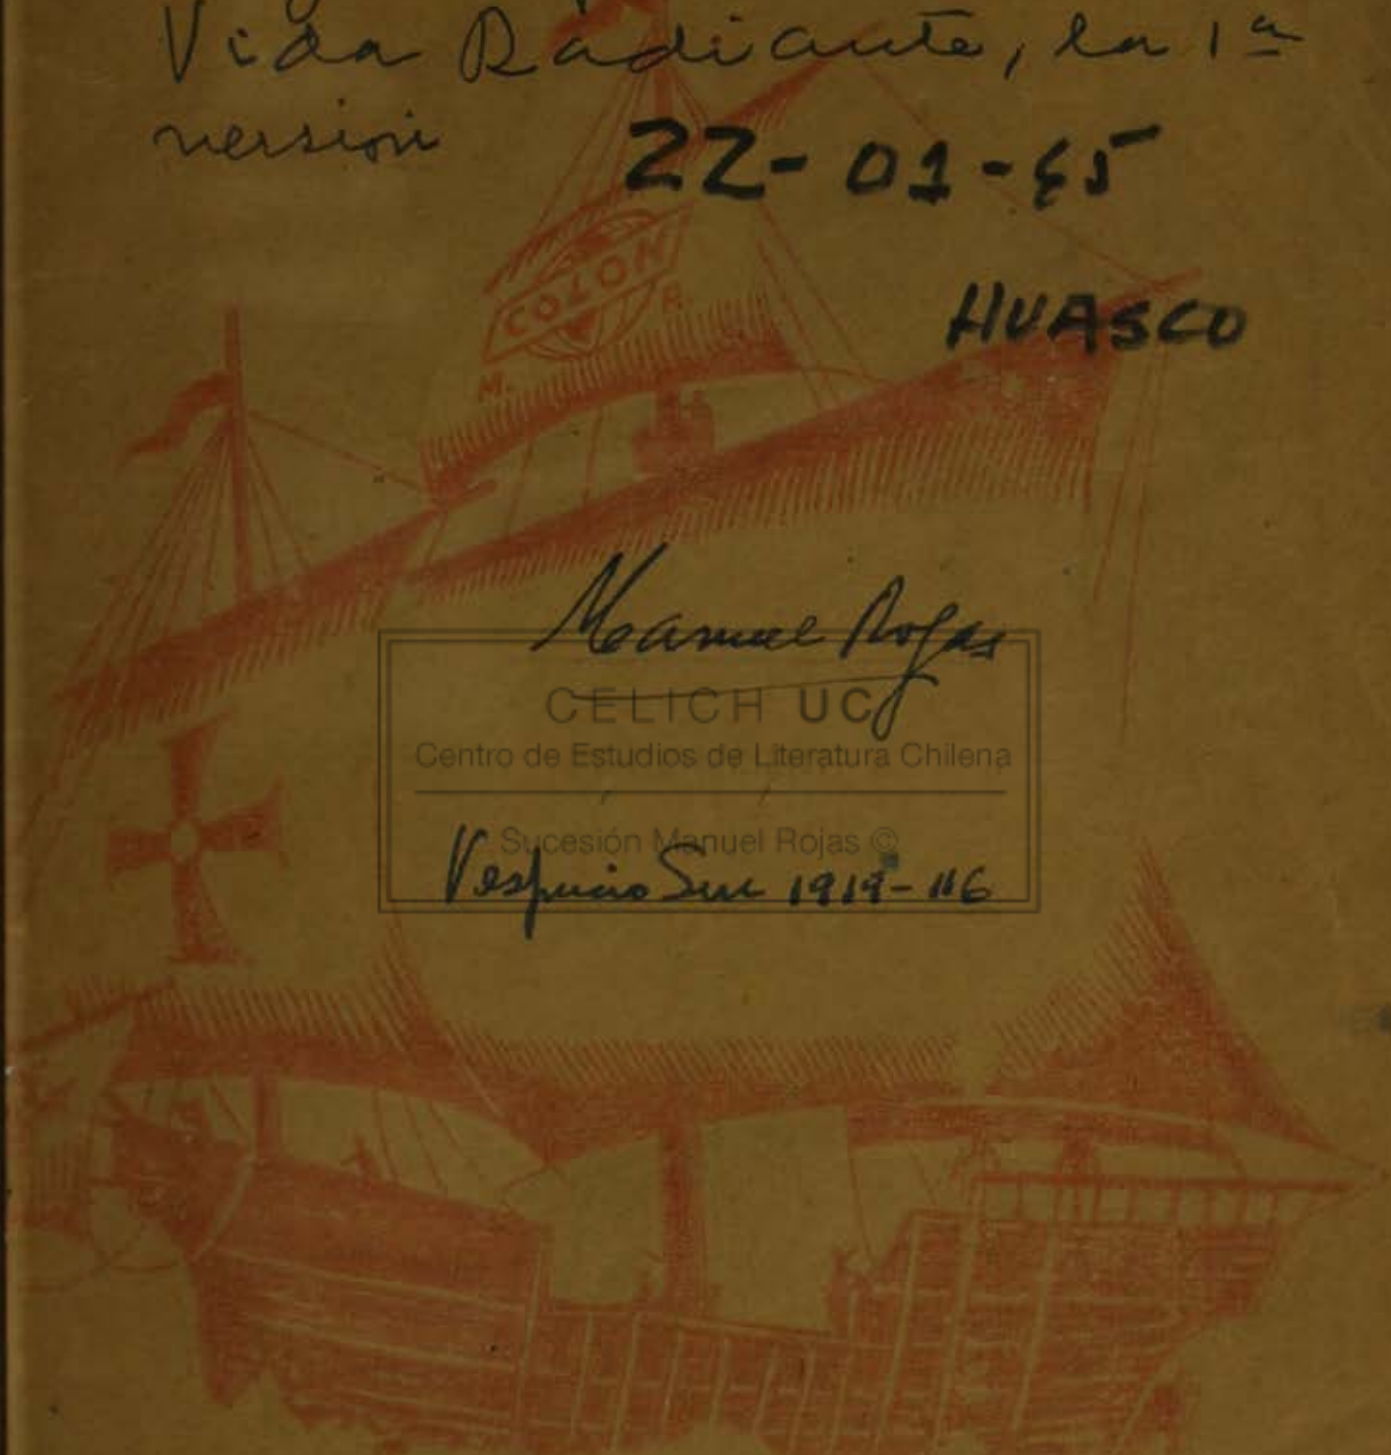 Vida Radiante, la 1ª
versión
22-01-65
COLON
M. R.
HUASCO
Manuel Rojas
CELICH UC
Centro de Estudios de Literatura Chilena
Sucesión Manuel Rojas ©
Vespucio Sur 1919-116